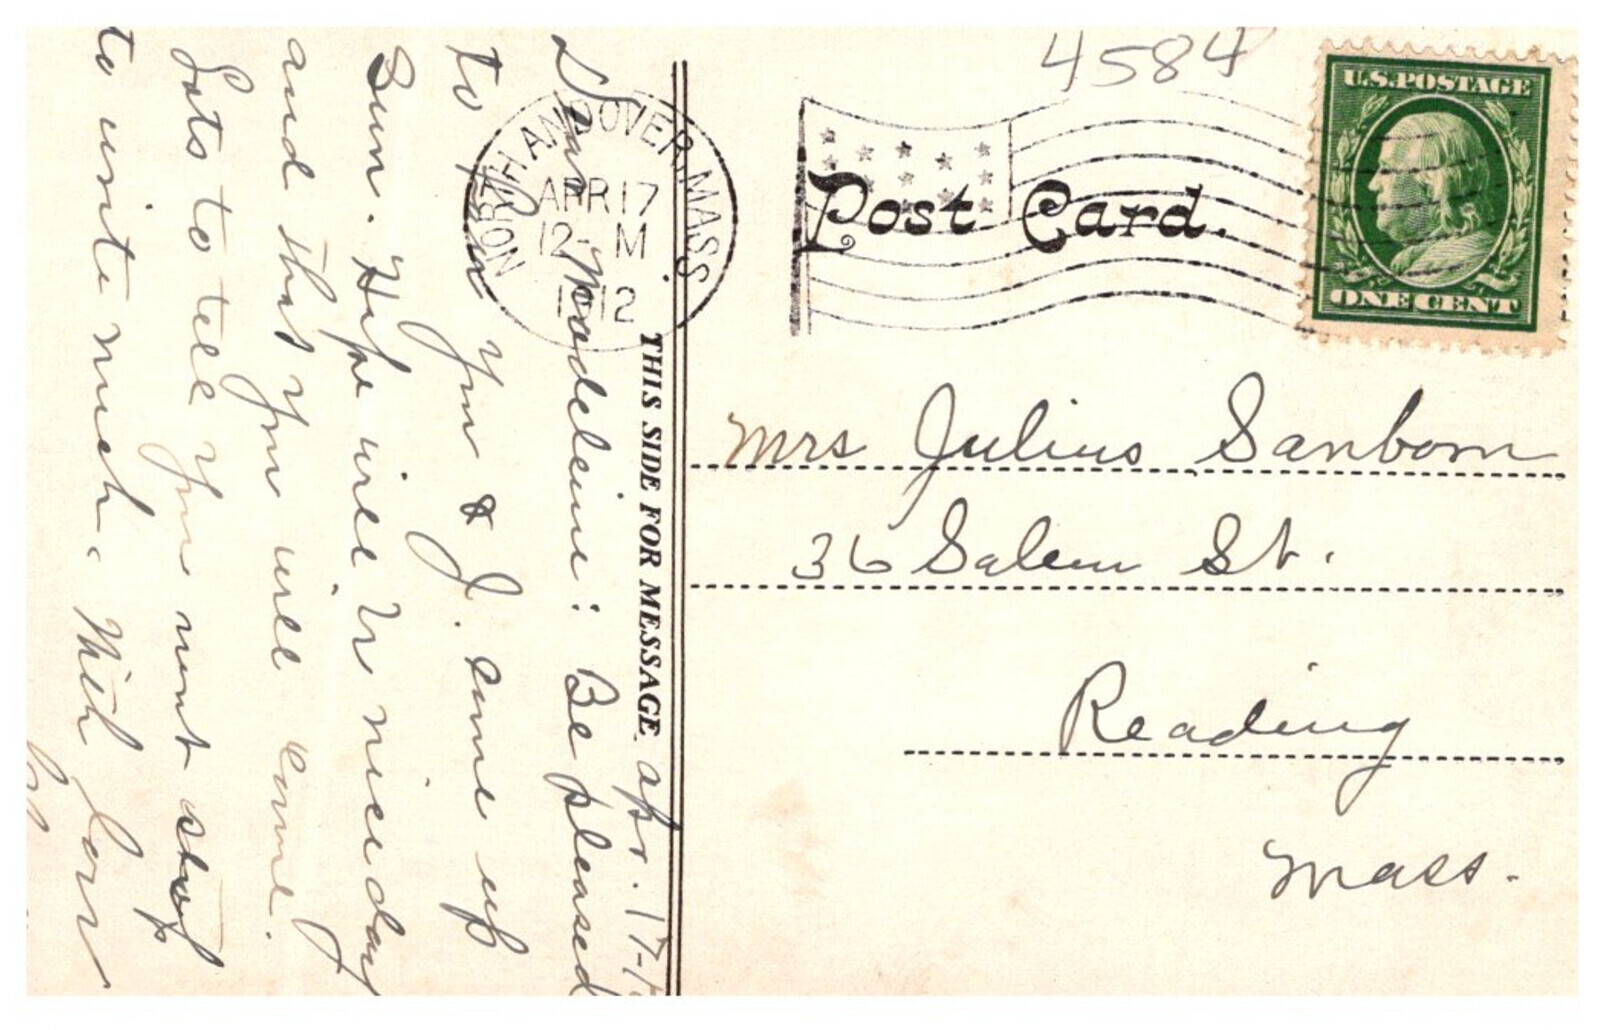 4584
U.S. POSTAGE
ONE CENT
NORTH ANDOVER MASS.
APR 17
12- M
1912
Post Card.
THIS SIDE FOR MESSAGE.
Mrs Julius Sanborn
36 Salem St.
Reading
Mass.
Apr. 17-1
Dear Madeleine: Be pleased
to you & J. come up
Sun. Hope will be nice day
and that you will come.
Lots to tell you must stop
to write much. With love